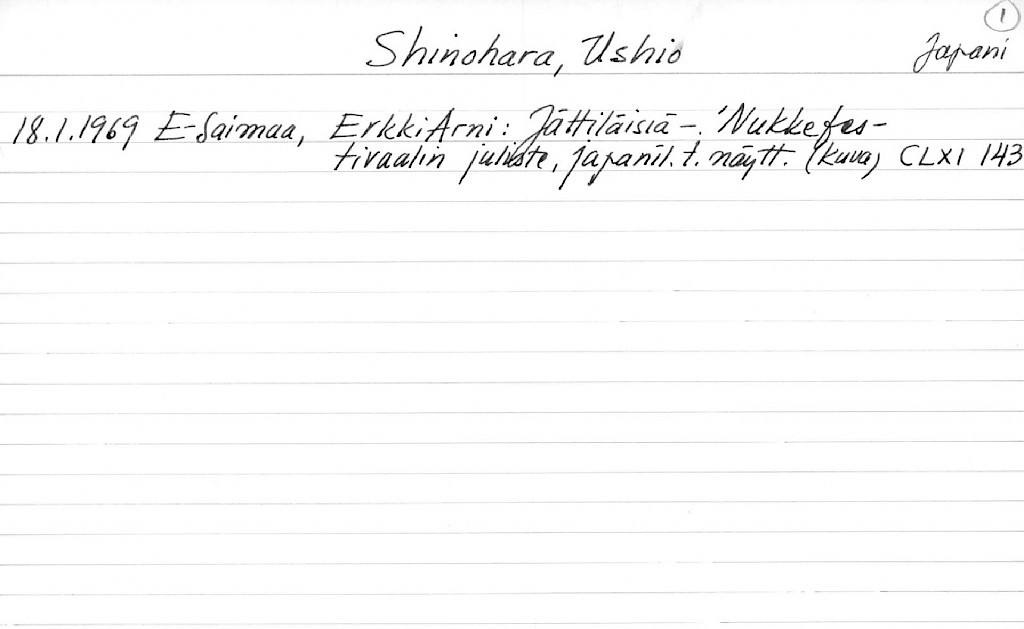 1
Shinohara, Ushio
Japani
18.1.1969 E-Saimaa, Erkki Arni: Jättiläisiä -. 'Nukkefes-
tivaalin juliste, japanil. t. näytt. (kuva) CLXI 143